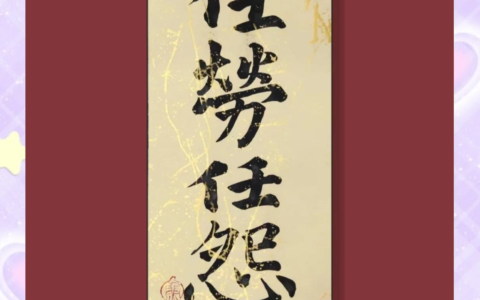 任勞任怨